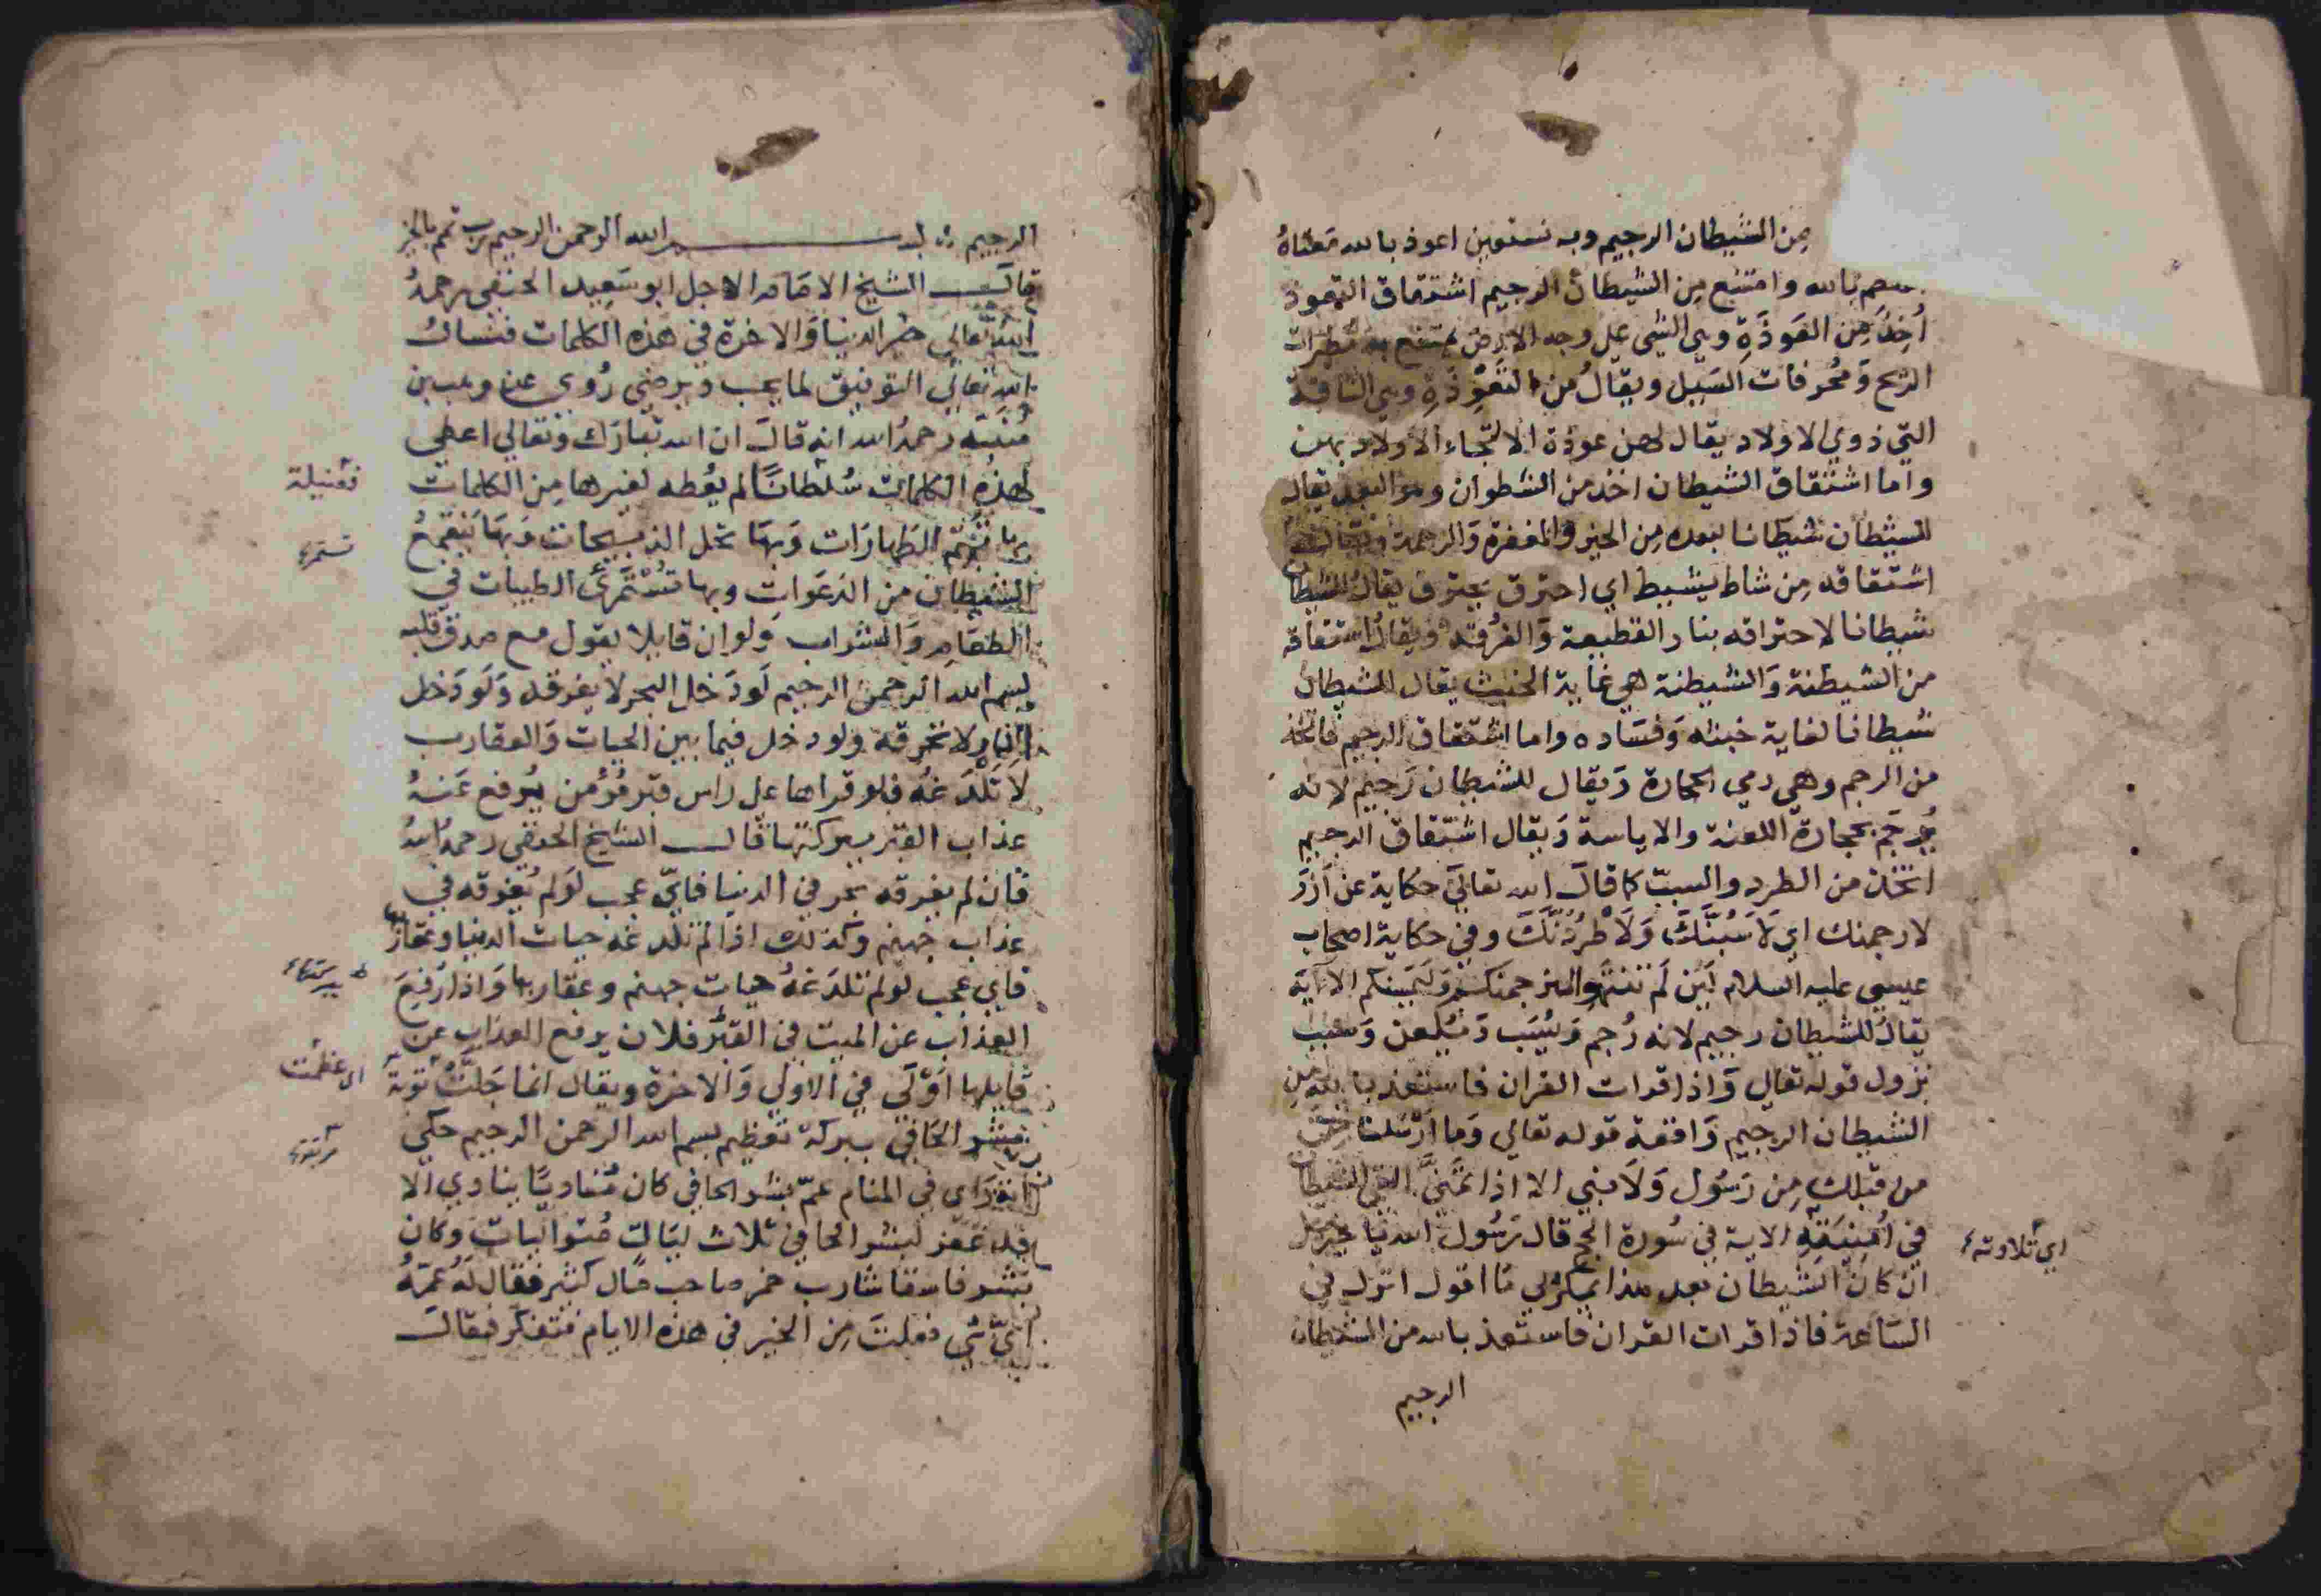 من الشيطان الرجيم وبه نستعين اعوذ بالله معناه
بالله وامتنع من الشيطان الرجيم اشتقاق التعوذ
أخذ من العَوذَةِ وهي الشي على وجه الارض يمتنع به
الريح وَمُحرفات السَيل ويقالُ من التَعَوُّذَةِ وهي الناقة
التي ذوي الاولاد يقال لهن عوذة الالتجاء الاولاد بهن
واما اشتقاق الشيطان اخذ من الشطوان وهو البعد يقال
للشيطان شيطانا لبعده مِن الخير والمغفرة وَالرحمة
اشتقاقه مِن شاط يشيط اي احترق يحترق يقال للشيطان
شيطانا لاحتراقه بنار القطيعة وَالفُرقة ويقال اشتقاقه
من الشيطنة وَالشيطنة هي غاية الخبث يقال للشيطان
شيطانا لغاية خبثه وَفسَاده واما اشتقاق الرجيم فاتخذ
من الرجم وهي رمي الحجارة وَيقال للشيطان رَجيم لانه
يُرجَم بحجارة اللعنة والاياسة وَيقال اشتقاق الرجيم
اتخذ من الطرد والسبّ كما قالَ الله تعالىَ حكاية عن آزرَ
لارجمنك اي لَاَسُبَّنَّكَ وَلَاَطرُدَنَّكَ وفي حكاية اصحاب
عيسى عليه السلام لَئِن لَم تنتهوا لنرجمنكم وَلَيَمسنكم الآية
يقالُ للشيطان رجيم لانه رُجم وَيُسَب وَيُلعن وَسَبب
نزول قوله تعالى وَاذا قرات القران فاستعذ بالله مِن
الشيطان الرجيم وَاقعة قوله تعالى وَما ارْسَلنا
من قبلك مِن رَسُول وَلَا نبي الا اذا تمَنَّىَ القى الشيطان
في اُمنِيَتِهِ الاية في سُورة الحج قال رَسُول الله يا جبرئل
ان كانَ الشيطان بعد هذا يمكر لي مَا اقول انزل في
السَاعة فاذا قرات القران فاستعذ بالله من الشيطان
الرجيم
اي تلاوته
الرجيم بسم الله الرحمن الرحيم رب تمم بالخير
قالَ الشيخ الامَام الاجل ابو سَعِيد الحنفي رحمهُ
اللهُ تعالى خير الدنيا وَالاخرة في هذه الكلمات فنسالُ
الله تعالى التوفيق لما يحب ويرضى رُوي عن وهب بن
مُنَبّه رحمهُ الله انه قالَ ان الله تبارَك وَتعالى اعطى
لهذهِ الكلمات سُلطانًا لم يُعطه لغيرها مِن الكلمات
بها تُتَمّ الطَهارَات وَبهَا تحل الذبيحات وَبهَا يَنقمعُ
الشيطان من الدَعَواتِ وبها تُسْتَمَرىَُ الطيبات في
الطعَام وَالشراب وَلو ان قايلا يقول مع صدق قلبه
بسم الله الرحمن الرحيم لَو دَخل البحر لا يغرقه وَلَو دَخل
النار لا تحرقه ولو دخل فيما بين الحيات وَالعقارب
لاَ تَلْدَغهُ فلو قراها على راس قبر مُؤمن يُرفع عَنهُ
عذاب القبر ببركتها قال الشيخ الحنفي رحمهُ اللهُ
فان لم يغرقه بحر في الدنيا فايّ عجب لَو لم يُغرقه في
عذاب جهنم وكذلك اذا لم تلدغه حيات الدنيا وعقاربها
فاي عجب لو لم تلدَغهُ حيات جهنم وعقاربها وَاذا رُفِعَ
العذاب عن الميت في القبْر فلان يرفع العذاب عن
قايلها اَوْلَى في الاولى وَالاخرة ويقال انما جَلّتْ توبة
بشر الحَافي ببركة تعظيم بسم الله الرحمن الرحيم حكى
انه رَاى في المنام عمّ بشر الحافي كان مُناديًا ينادي الا
قد غفر لبشر الحافي ثلاث ليَالٍ مُتواليات وَكان
بشر فاسقا شارب خمر صاحب مَال كثير فقال لَهُ عَمّهُ
ايَّ شي فعلتَ مِن الخير في هذه الايام فتفكر فقالَ
فضيلة
تستمرء
اي عظمت